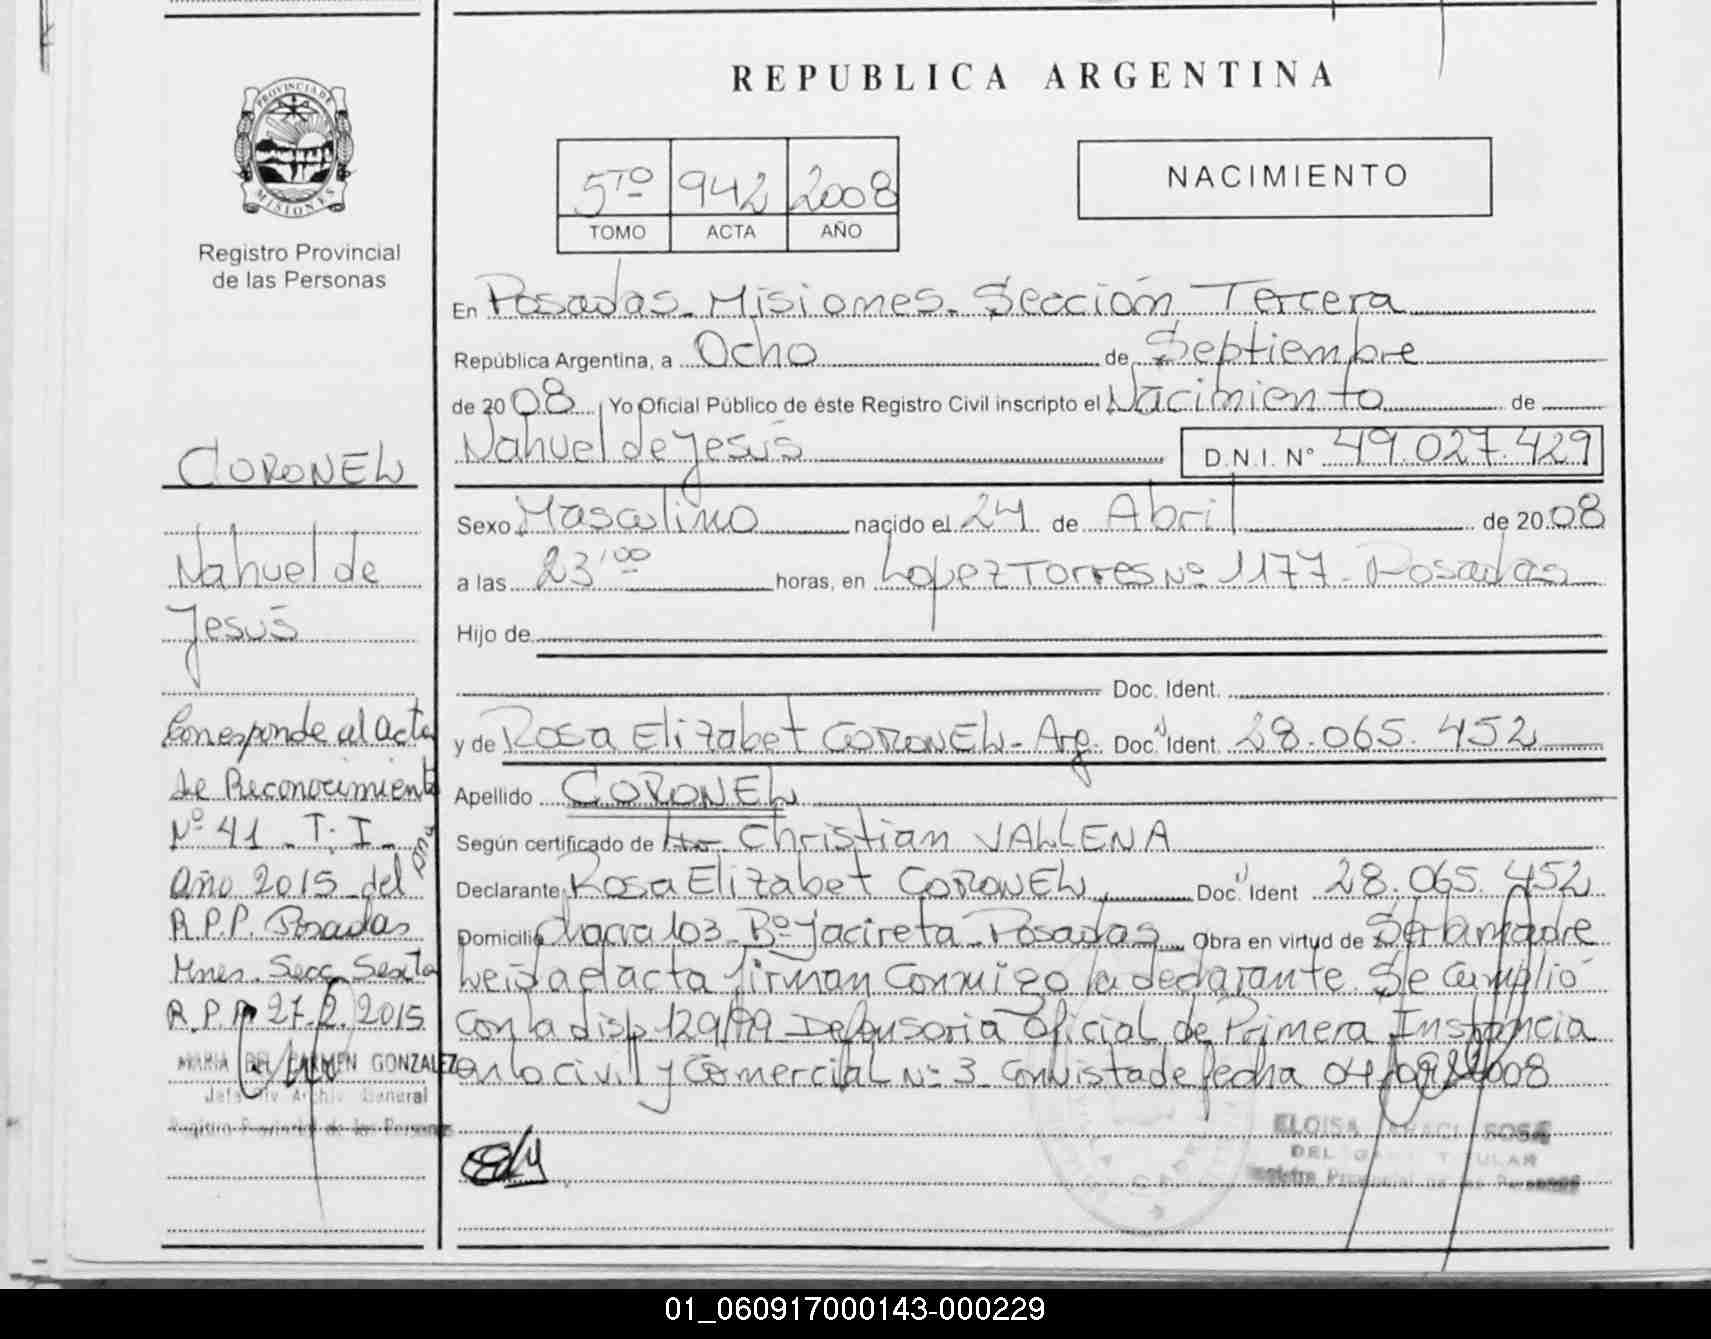 PROVINCIA DE
MISIONES
Registro Provincial
de las Personas
CORONEL
Nahuel de
Jesús
Corresponde al acta
de Reconocimiento
Nº 41 - T. I -
año 2015 del
R.P.P. Posadas
Mnes. Secc. Sexta
R.P.P. 27.2.2015
MARIA DEL CARMEN GONZALEZ
Jefe Div Archivo General
Registro Provincial de las Personas
REPUBLICA ARGENTINA
5TO 942 2008
TOMO ACTA AÑO
NACIMIENTO
En Posadas - Misiones - Sección Tercera
República Argentina, a Ocho de Septiembre
de 20 08, Yo Oficial Público de éste Registro Civil inscripto el Nacimiento de
Nahuel de Jesús D.N.I. N° 49.027.429
Sexo Masculino nacido el 24 de Abril de 20 08
a las 23'00 horas, en Lopez Torres Nº 1177 - Posadas
Hijo de
Doc. Ident.
y de Rosa Elizabet CORONEL - Arg. Doc. Ident. 28.065.452
Apellido CORONEL
Según certificado de Christian VALLENA
Declarante Rosa Elizabet CORONEL Doc. Ident 28.065.452
Domicilio Chacra 103 - Bº Jacireta - Posadas Obra en virtud de Ser la madre
Leida el acta firman conmigo la declarante. Se cumplió
con la disp. 129/99 - Defensoria Oficial de Primera Instancia
en lo civil y Comercial Nº 3 - con vista de fecha 04/09/2008
ELOISA ROSA
Registro Provincial de las Personas
01_060917000143-000229